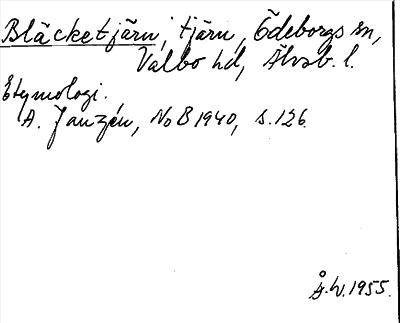 Bläcketjärn, tjärn, Ödeborgs sn,
Valbo hd, Älvsb. l.
Etymologi.
A. Janzén, NoB 1940, s. 126.
Å.W. 1955.